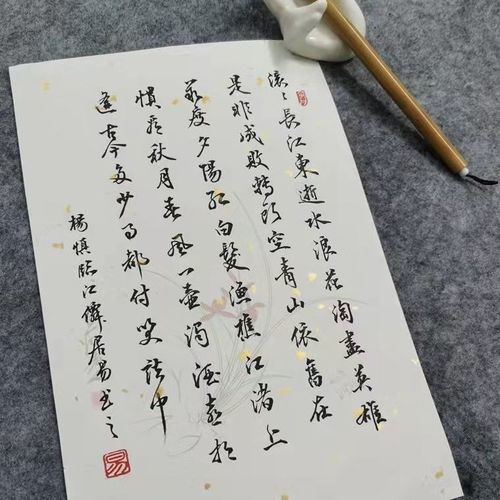 滚〻長江東逝水浪花淘盡英雄
是非成敗轉頭空青山依舊在
幾度夕陽紅白髮漁樵江渚上
慣看秋月春風一壺濁酒喜相
逢古今多少事都付笑談中
楊慎臨江僊居易书之
易